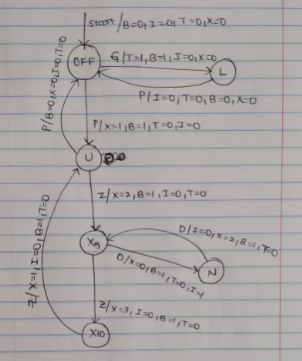 start/B=0,I=0,T=0,X=0
OFF
G/T=1,B=1,I=0,X=0
L
P/I=0,T=0,B=0,X=0
P/B=0,X=0,I=0,T=0
P/X=1,B=1,T=0,I=0
U
Z/X=2,B=1,I=0,T=0
D/I=0,X=2,B=1,T=0
D/X=0,B=1,T=0,I=1
N
Z/X=1,I=0,B=1,T=0
Z/X=3,I=0,B=1,T=0
X10